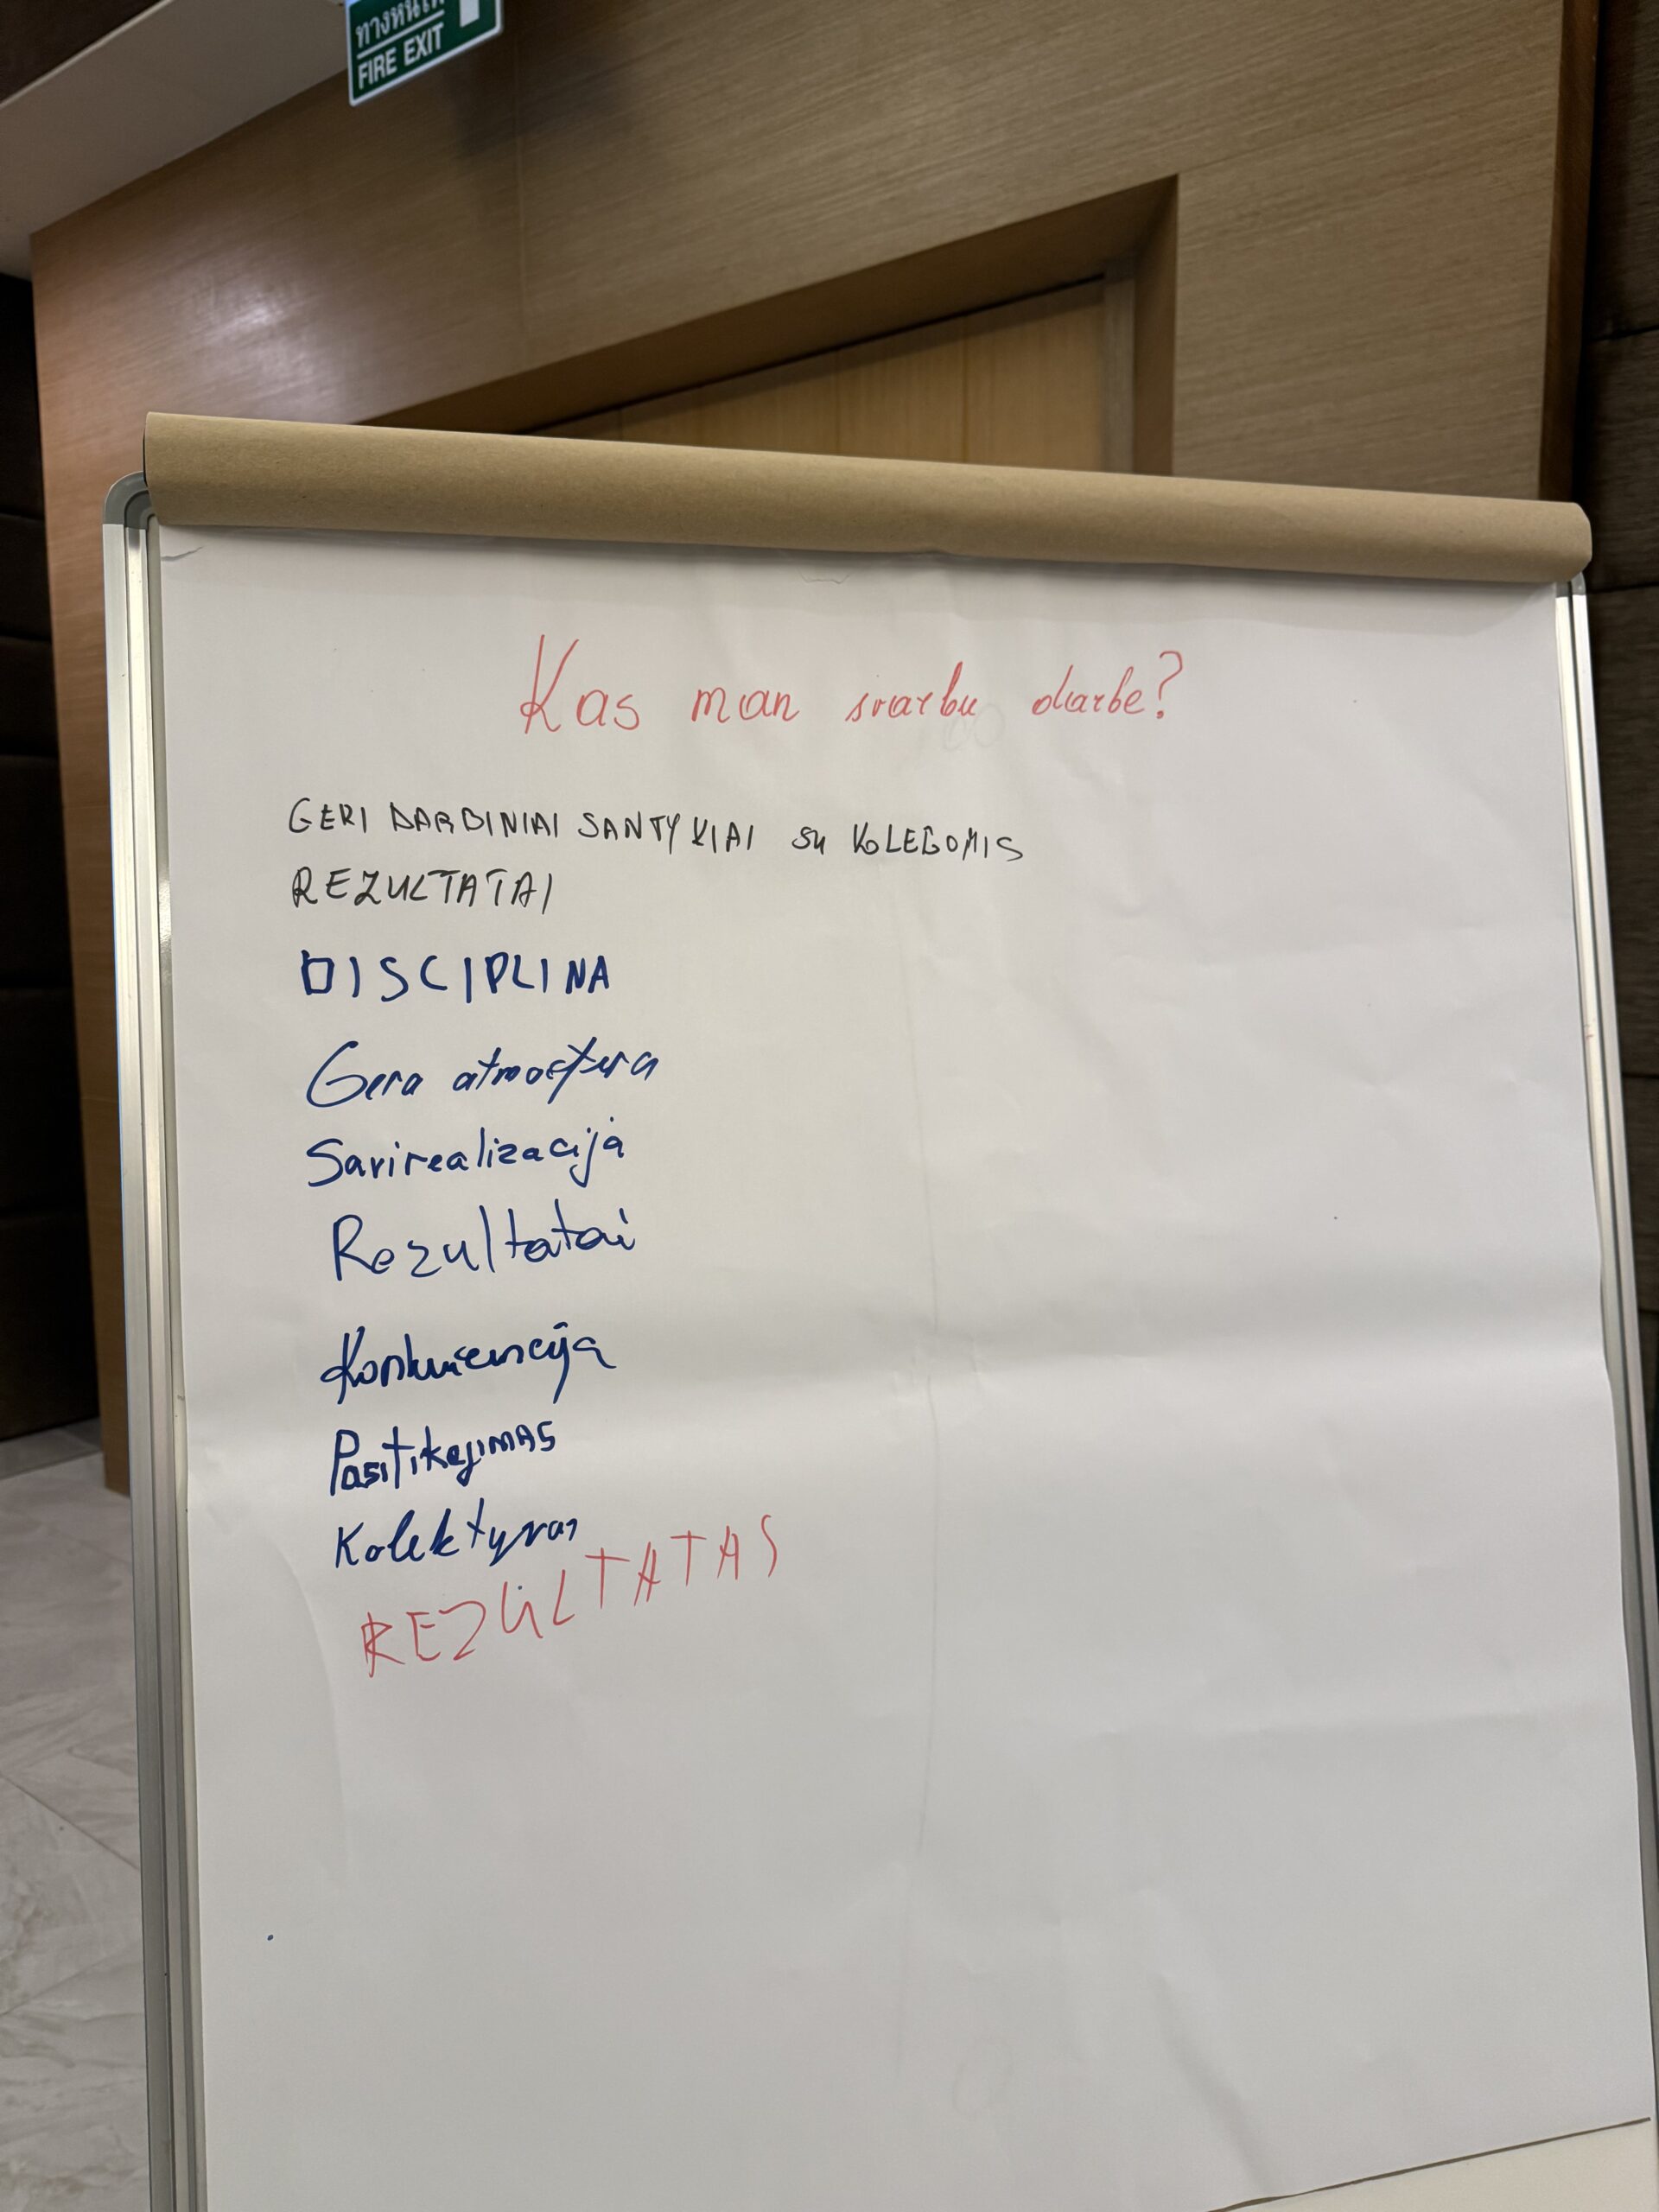 ทางหนีไฟ
FIRE EXIT
Kas man svarbu darbe?
GERI DARBINIAI SANTYKIAI su KOLEGOMIS
REZULTATAI
DISCIPLINA
Gera atmosfera
Savirealizacija
Rezultatai
Konkurencija
Pasitikejimas
Kolektyvas
REZULTATAS